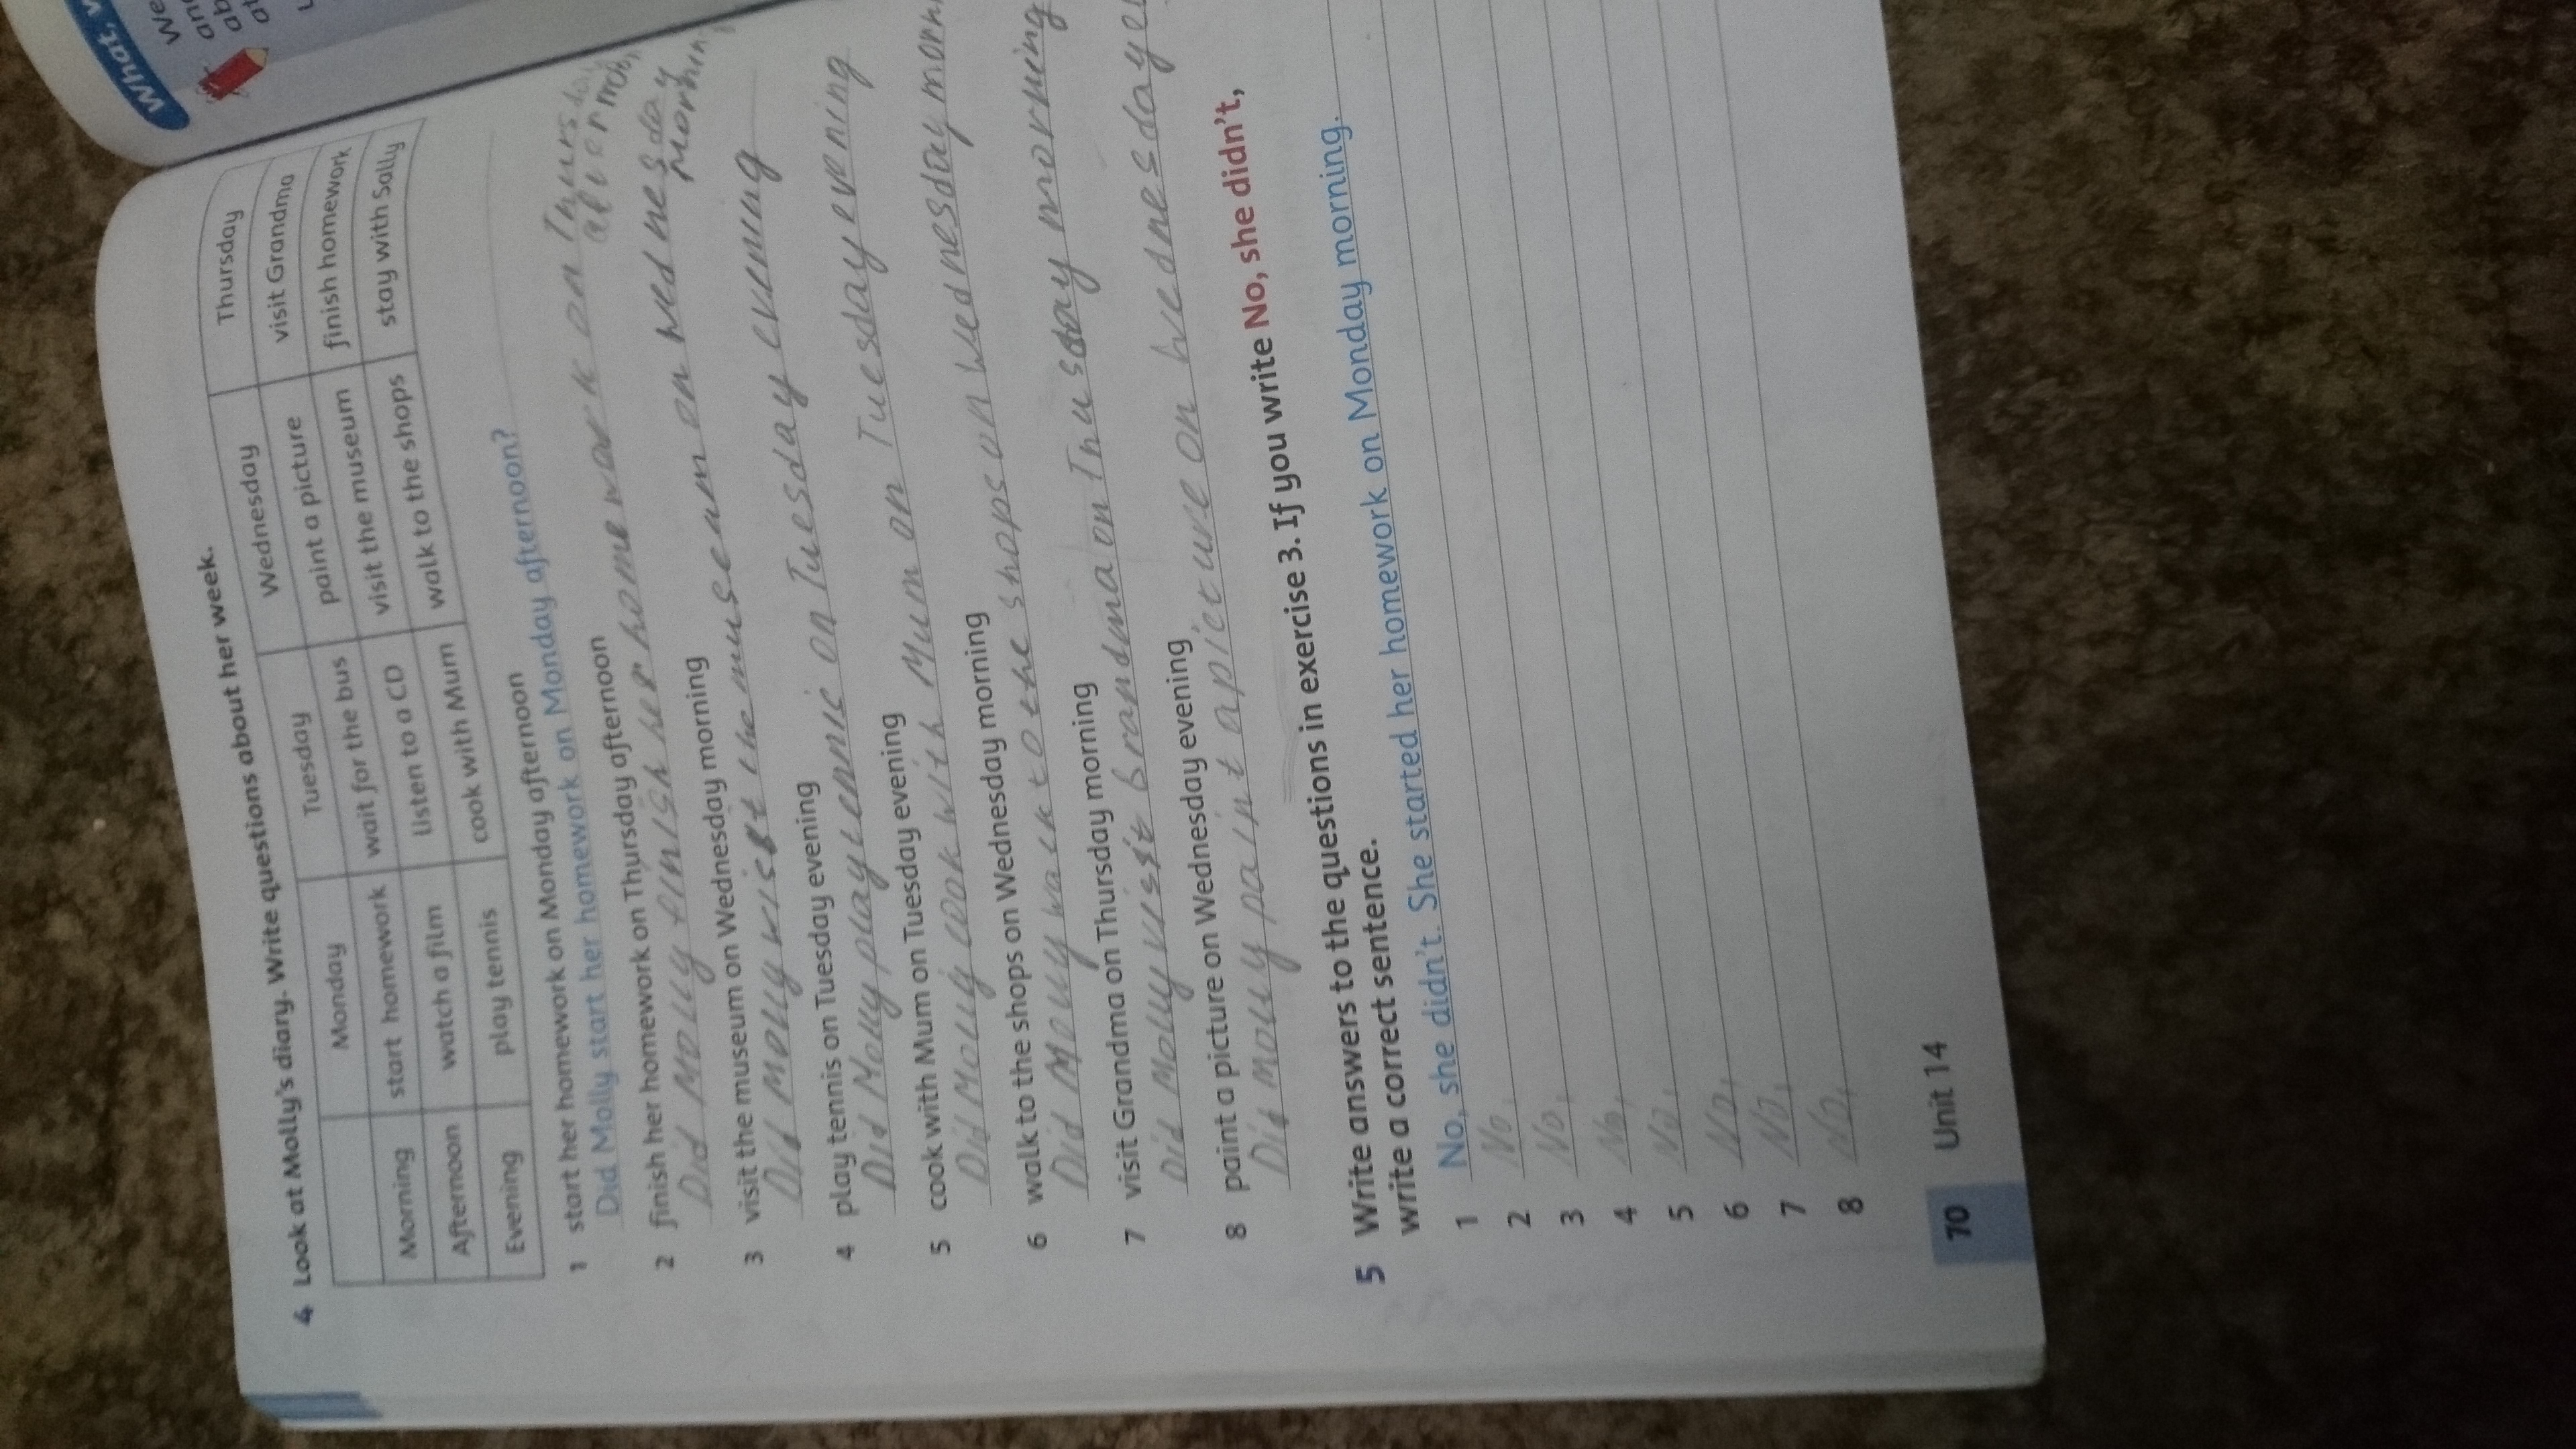 What, w
We
an
ab
4 Look at Molly's diary. Write questions about her week.
Monday Tuesday Wednesday Thursday
Morning start homework wait for the bus paint a picture visit Grandma
Afternoon watch a film listen to a CD visit the museum finish homework
Evening play tennis cook with Mum walk to the shops stay with Sally
1 start her homework on Monday afternoon
Did Molly start her homework on Monday afternoon?
2 finish her homework on Thursday afternoon
Did Molly finish her homework on Thursday
3 visit the museum on Wednesday morning
Did Molly visit the museum on Wednesday
morning
4 play tennis on Tuesday evening
Did Molly play tennis on Tuesday evening
5 cook with Mum on Tuesday evening
Did Molly cook with Mum on Tuesday evening
6 walk to the shops on Wednesday morning
Did Molly walk to the shops on Wednesday morn
7 visit Grandma on Thursday morning
Did Molly visit Grandma on Thusday morning
8 paint a picture on Wednesday evening
Did Molly paint a picture on Wednesday eve
5 Write answers to the questions in exercise 3. If you write No, she didn't,
write a correct sentence.
1 No, she didn't. She started her homework on Monday morning.
2 No,
3 No,
4 No,
5 No,
6 No,
7 No,
8 No,
70 Unit 14